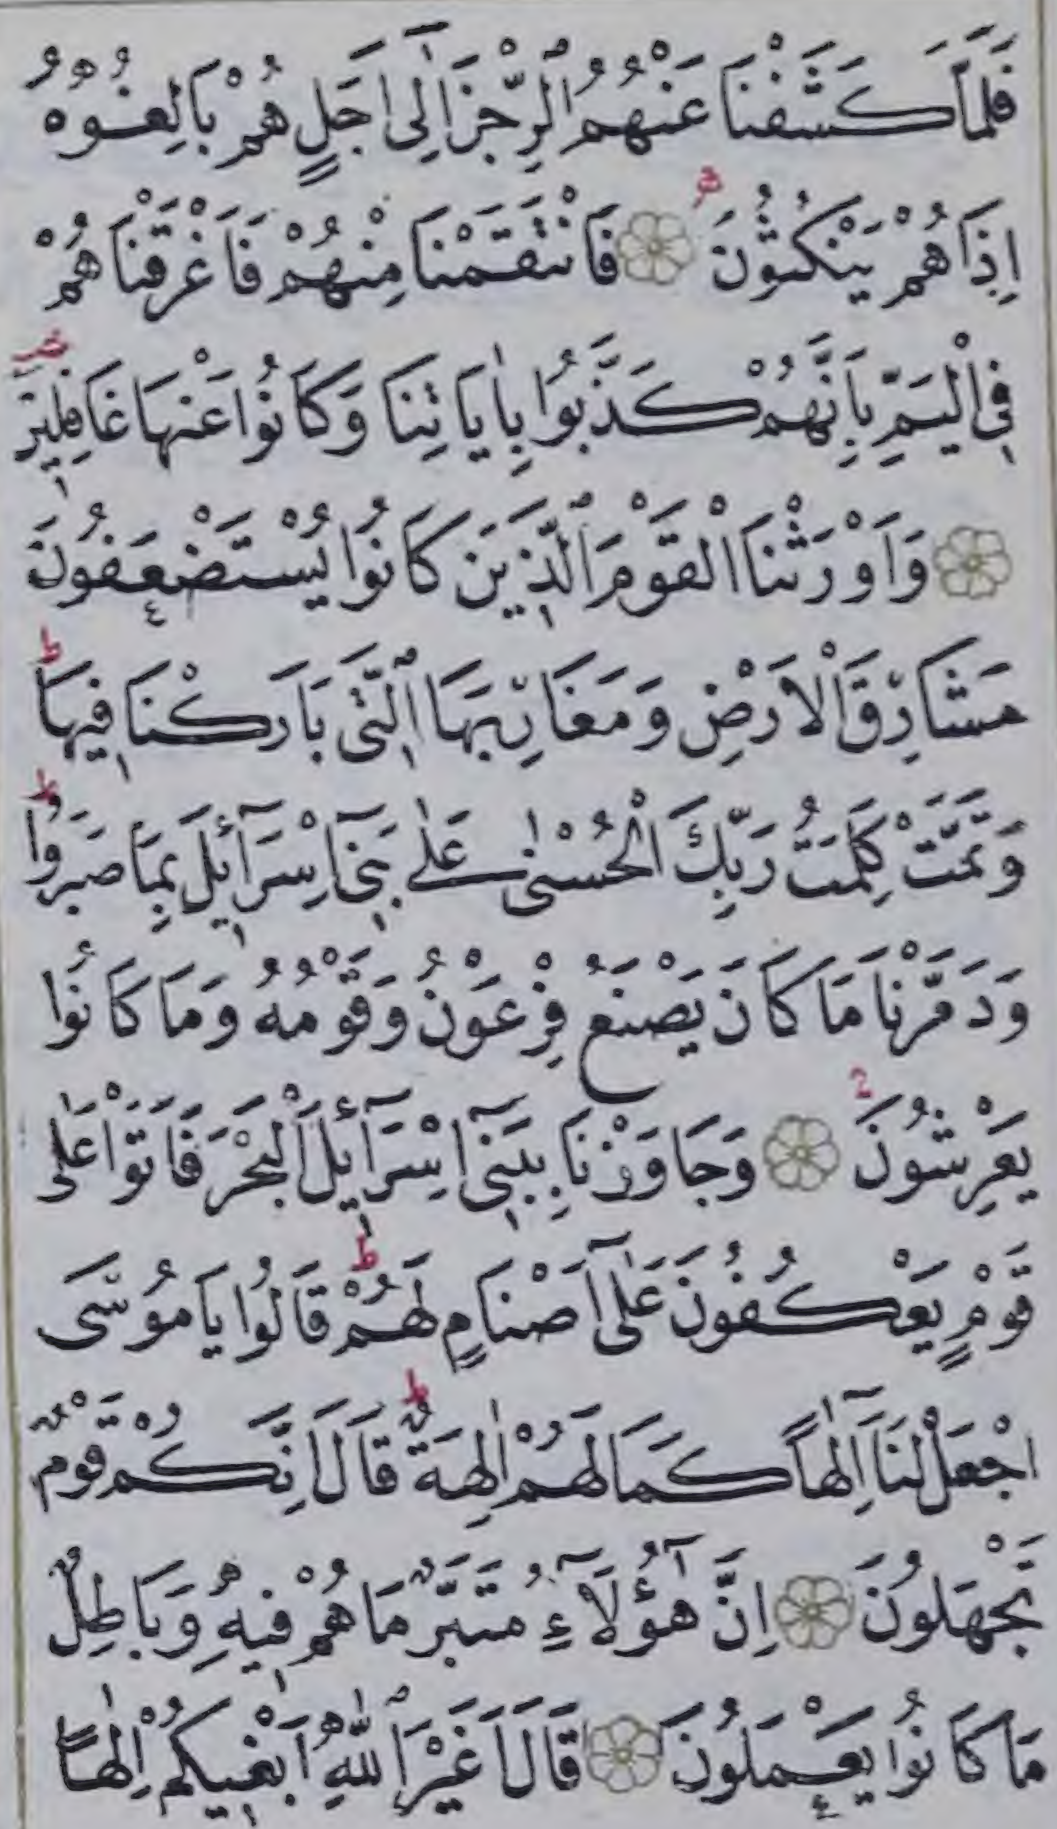 فَلَمَّا كَشَفْنَا عَنْهُمُ الرِّجْزَ اِلٰى اَجَلٍ هُمْ بَالِغُوهُ
اِذَا هُمْ يَنْكُثُونَ فَانْتَقَمْنَا مِنْهُمْ فَاَغْرَقْنَاهُمْ
فِى الْيَمِّ بِاَنَّهُمْ كَذَّبُوا بِاٰيَاتِنَا وَكَانُوا عَنْهَا غَافِلِينَ
وَاَوْرَثْنَا الْقَوْمَ الَّذِينَ كَانُوا يُسْتَضْعَفُونَ
مَشَارِقَ الْاَرْضِ وَمَغَارِبَهَا الَّتِى بَارَكْنَا فِيهَا ط
وَتَمَّتْ كَلِمَتُ رَبِّكَ الْحُسْنٰى عَلٰى بَنِٓى اِسْرَٓائِلَ بِمَا صَبَرُوا ط
وَدَمَّرْنَا مَا كَانَ يَصْنَعُ فِرْعَوْنُ وَقَوْمُهُ وَمَا كَانُوا
يَعْرِشُونَ وَجَاوَزْنَا بِبَنِٓى اِسْرَٓائِلَ الْبَحْرَ فَاَتَوْا عَلٰى
قَوْمٍ يَعْكُفُونَ عَلٰٓى اَصْنَامٍ لَهُمْ ط قَالُوا يَا مُوسَى
اجْعَلْ لَنَٓا اِلٰهًا كَمَا لَهُمْ اٰلِهَةٌ ط قَالَ اِنَّكُمْ قَوْمٌ
تَجْهَلُونَ اِنَّ هٰٓؤُلَٓاءِ مُتَبَّرٌ مَا هُمْ فِيهِ وَبَاطِلٌ
مَا كَانُوا يَعْمَلُونَ قَالَ اَغَيْرَ اللّٰهِ اَبْغِيكُمْ اِلٰهًا